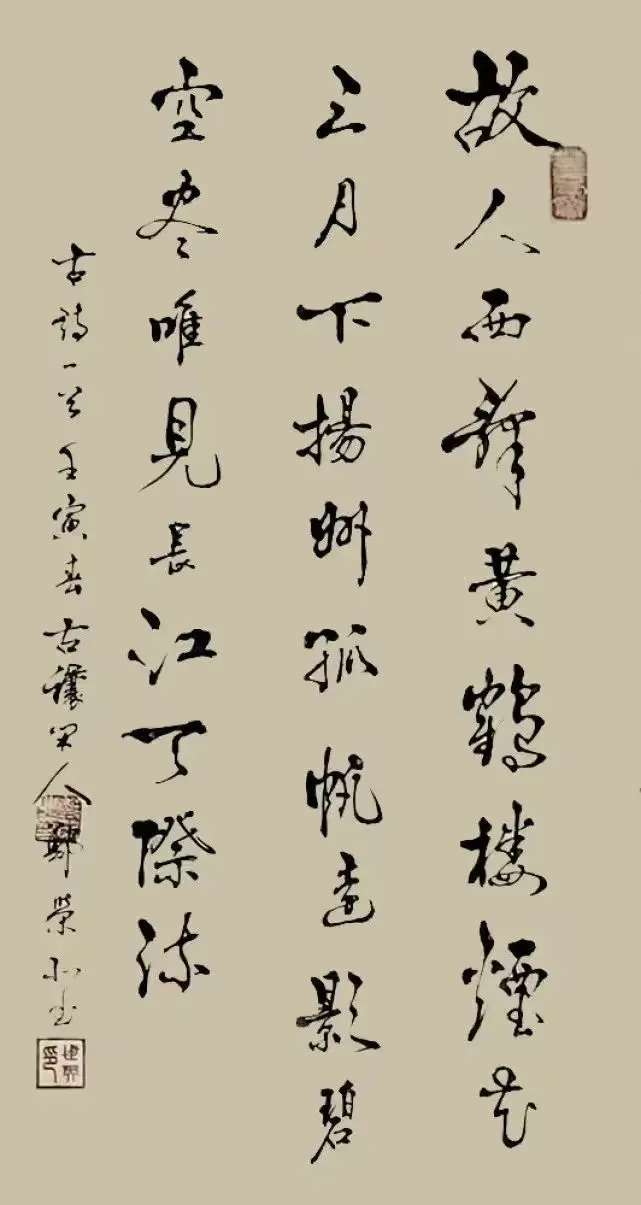 故人西辭黃鶴樓煙花
三月下揚州孤帆遠影碧
空盡唯見長江天際流
古詩一首壬寅春古穰閑人鄭榮和書